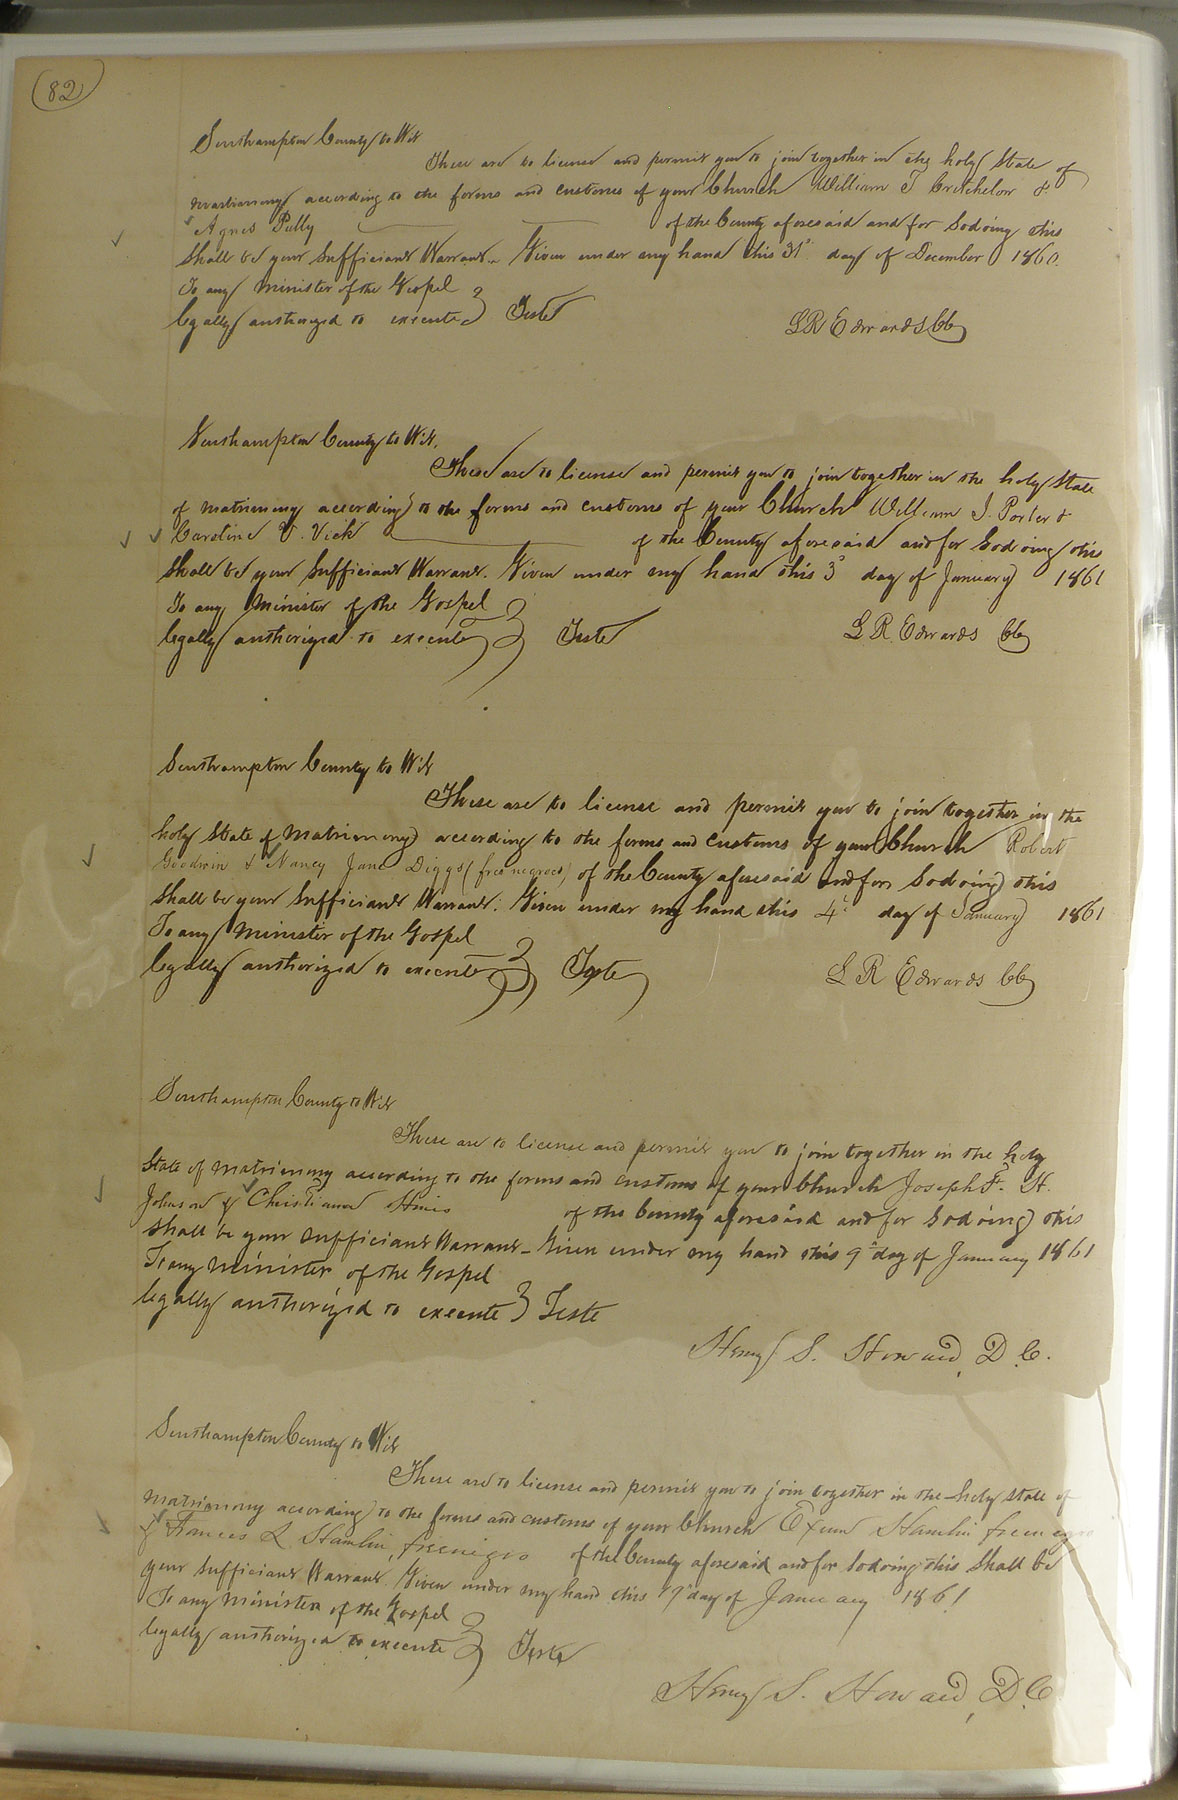 (82)
Southampton County to Wit
These are to license and permit you to join together in the holy State of
matrimony according to the forms and customs of your Church William T Critchelow &
Agnes Pully of the County aforesaid and for So doing this
Shall be your Sufficient Warrant. Given under my hand this 31st day of December 1860.
To any Minister of the Gospel
legally authorized to execute } Teste
L R Edwards CC
Southampton County to Wit.
These are to license and permit you to join together in the holy State
of matrimony according to the forms and customs of your Church William J. Porter &
Caroline V. Vick of the County aforesaid and for So doing this
Shall be your Sufficient Warrant. Given under my hand this 3d day of January 1861
To any Minister of the Gospel
legally authorized to execute } Teste
L R Edwards CC
Southampton County to Wit
These are to license and permit you to join together in the
holy State of Matrimony according to the forms and customs of your Church Robert
Goodwin & Nancy Jane Diggs (free negroes) of the County aforesaid and for So doing this
Shall be your Sufficient Warrant. Given under my hand this 4th day of January 1861
To any Minister of the Gospel
legally authorized to execute } Teste
L R Edwards CC
Southampton County to Wit
These are to license and permit you to join together in the holy
State of matrimony according to the forms and customs of your Church Joseph F. H.
Johnson & Christiana of the County aforesaid and for So doing this
Shall be your Sufficient Warrant - Given under my hand this 9th day of January 1861
To any Minister of the Gospel
legally authorized to execute } Teste
Henry S. Howard, D. C.
Southampton County to Wit
These are to license and permit you to join together in the holy State of
matrimony according to the forms and customs of your Church Exum Hamlin free negro
& Frances L Hamlin, free negro of the County aforesaid and for So doing this Shall be
your Sufficient Warrant. Given under my hand this day of January 1861
To any Minister of the Gospel
legally authorized to execute } Teste
Henry S. Howard, D. C.